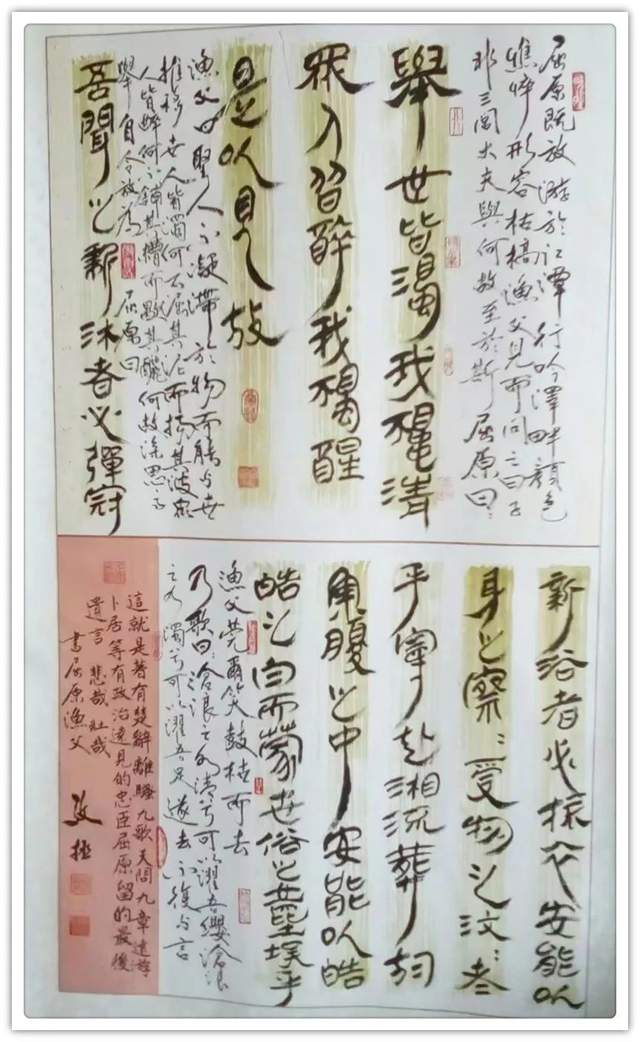 屈原既放游於江潭行吟澤畔顏色
憔悴形容枯槁漁父見而問之曰子
非三閭大夫與何故至於斯屈原曰：
舉世皆濁我獨清
眾人皆醉我獨醒
是以見放
漁父曰聖人不凝滯於物而能与世
推移世人皆濁何不淈其泥而揚其波眾
人皆醉何不餔其糟而歠其釃何故深思高
舉自令放為 屈原曰
吾聞之新沐者必彈冠
新浴者必振衣安能以
身之察：受物之汶：者
乎寧赴湘流葬於
魚腹之中安能以皓
皓之白而蒙世俗之塵埃乎
漁父莞爾笑鼓枻而去
乃歌曰滄浪之水清兮可以濯吾纓滄浪
之水濁兮可以濯吾足遂去不復与言
這就是著有楚辭離騷九歌天問九章遠游
卜居等有政治遠見的忠臣屈原留的最後
遺言 悲哉 壯哉
書屈原漁父